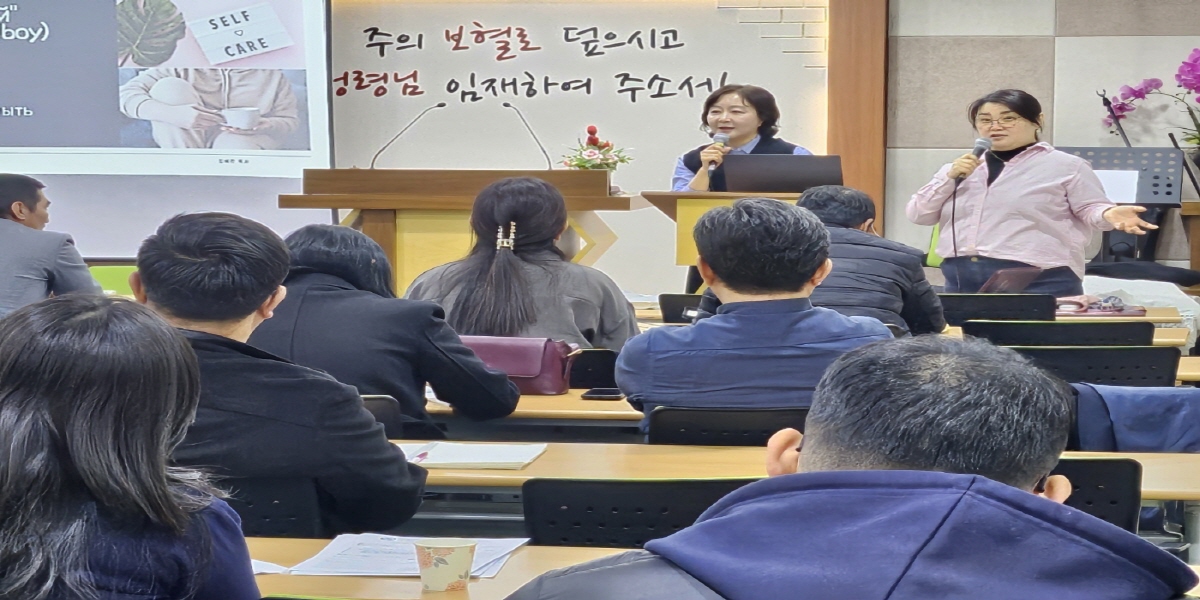 й"
boy)
ЫТЬ
SELF
CARE
주의 보혈로 덮으시고
성령님 임재하여 주소서!